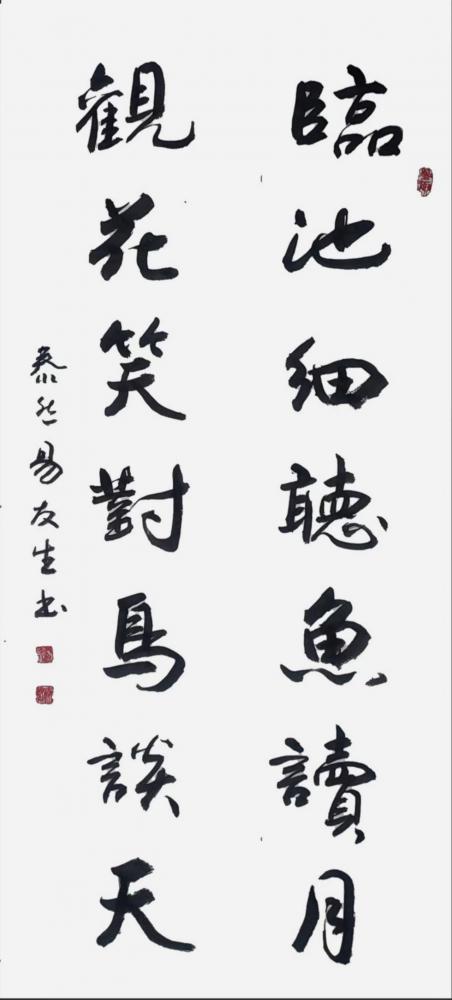 臨池細聽魚讀月
觀花笑對鳥談天
泰然易友生书